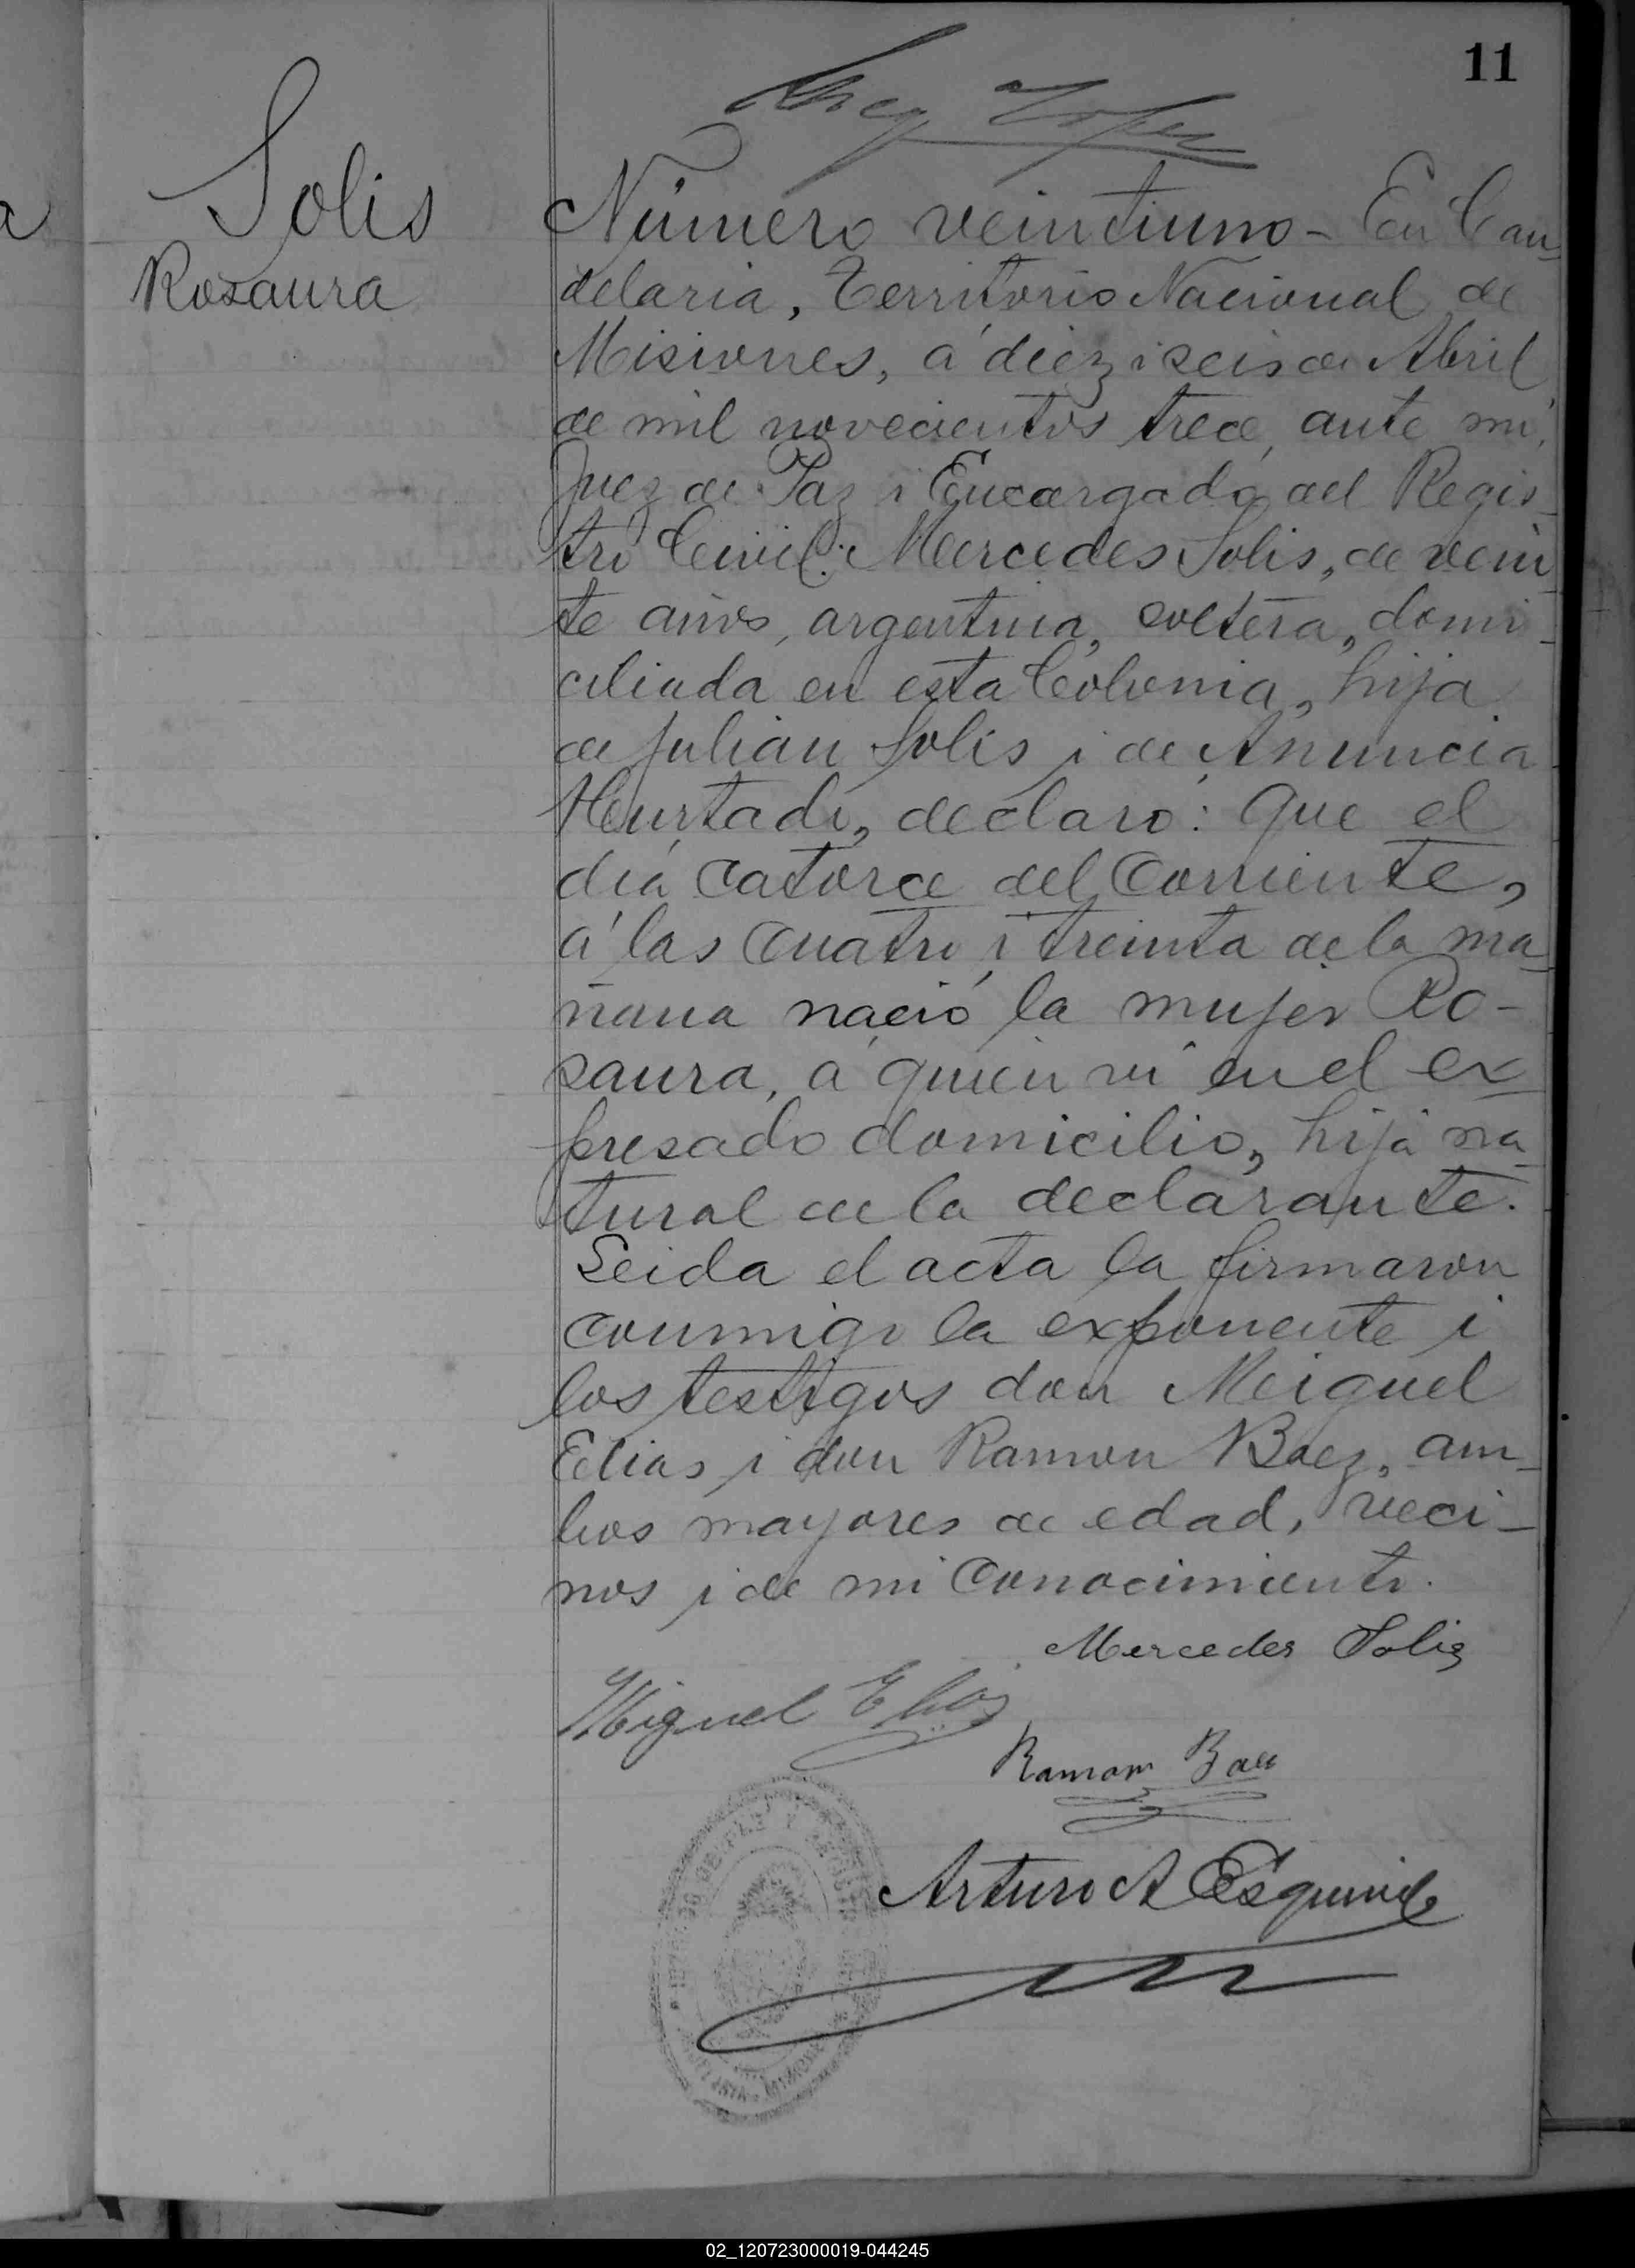 11
Solis
Rosaura
Número veintiuno - En Can-
delaria, Territorio Nacional de
Misiones, á diez i seis de Abril
de mil novecientos trece, ante mi,
Juez de Paz i Encargado del Regis-
tro Civil: Mercedes Solis, de vein-
te años, argentina, soltera, domi-
ciliada en esta Colonia, hija
de Julian Solis i de Anuncia
Hurtado, declaró: Que el
día catorce del corriente,
á las cuatro i treinta de la ma-
ñana nació la mujer Ro-
saura, á quien vi en el ex-
presado domicilio, hija na-
tural de la declarante.
Leida el acta la firmaron
conmigo la exponente i
los testigos don Miguel
Elias i don Ramon Baez, am-
bos mayores de edad, veci-
nos i de mi conocimiento.
Mercedes Solis
Miguel Elias
Ramon Baes
Arturo A
02_120723000019-044245